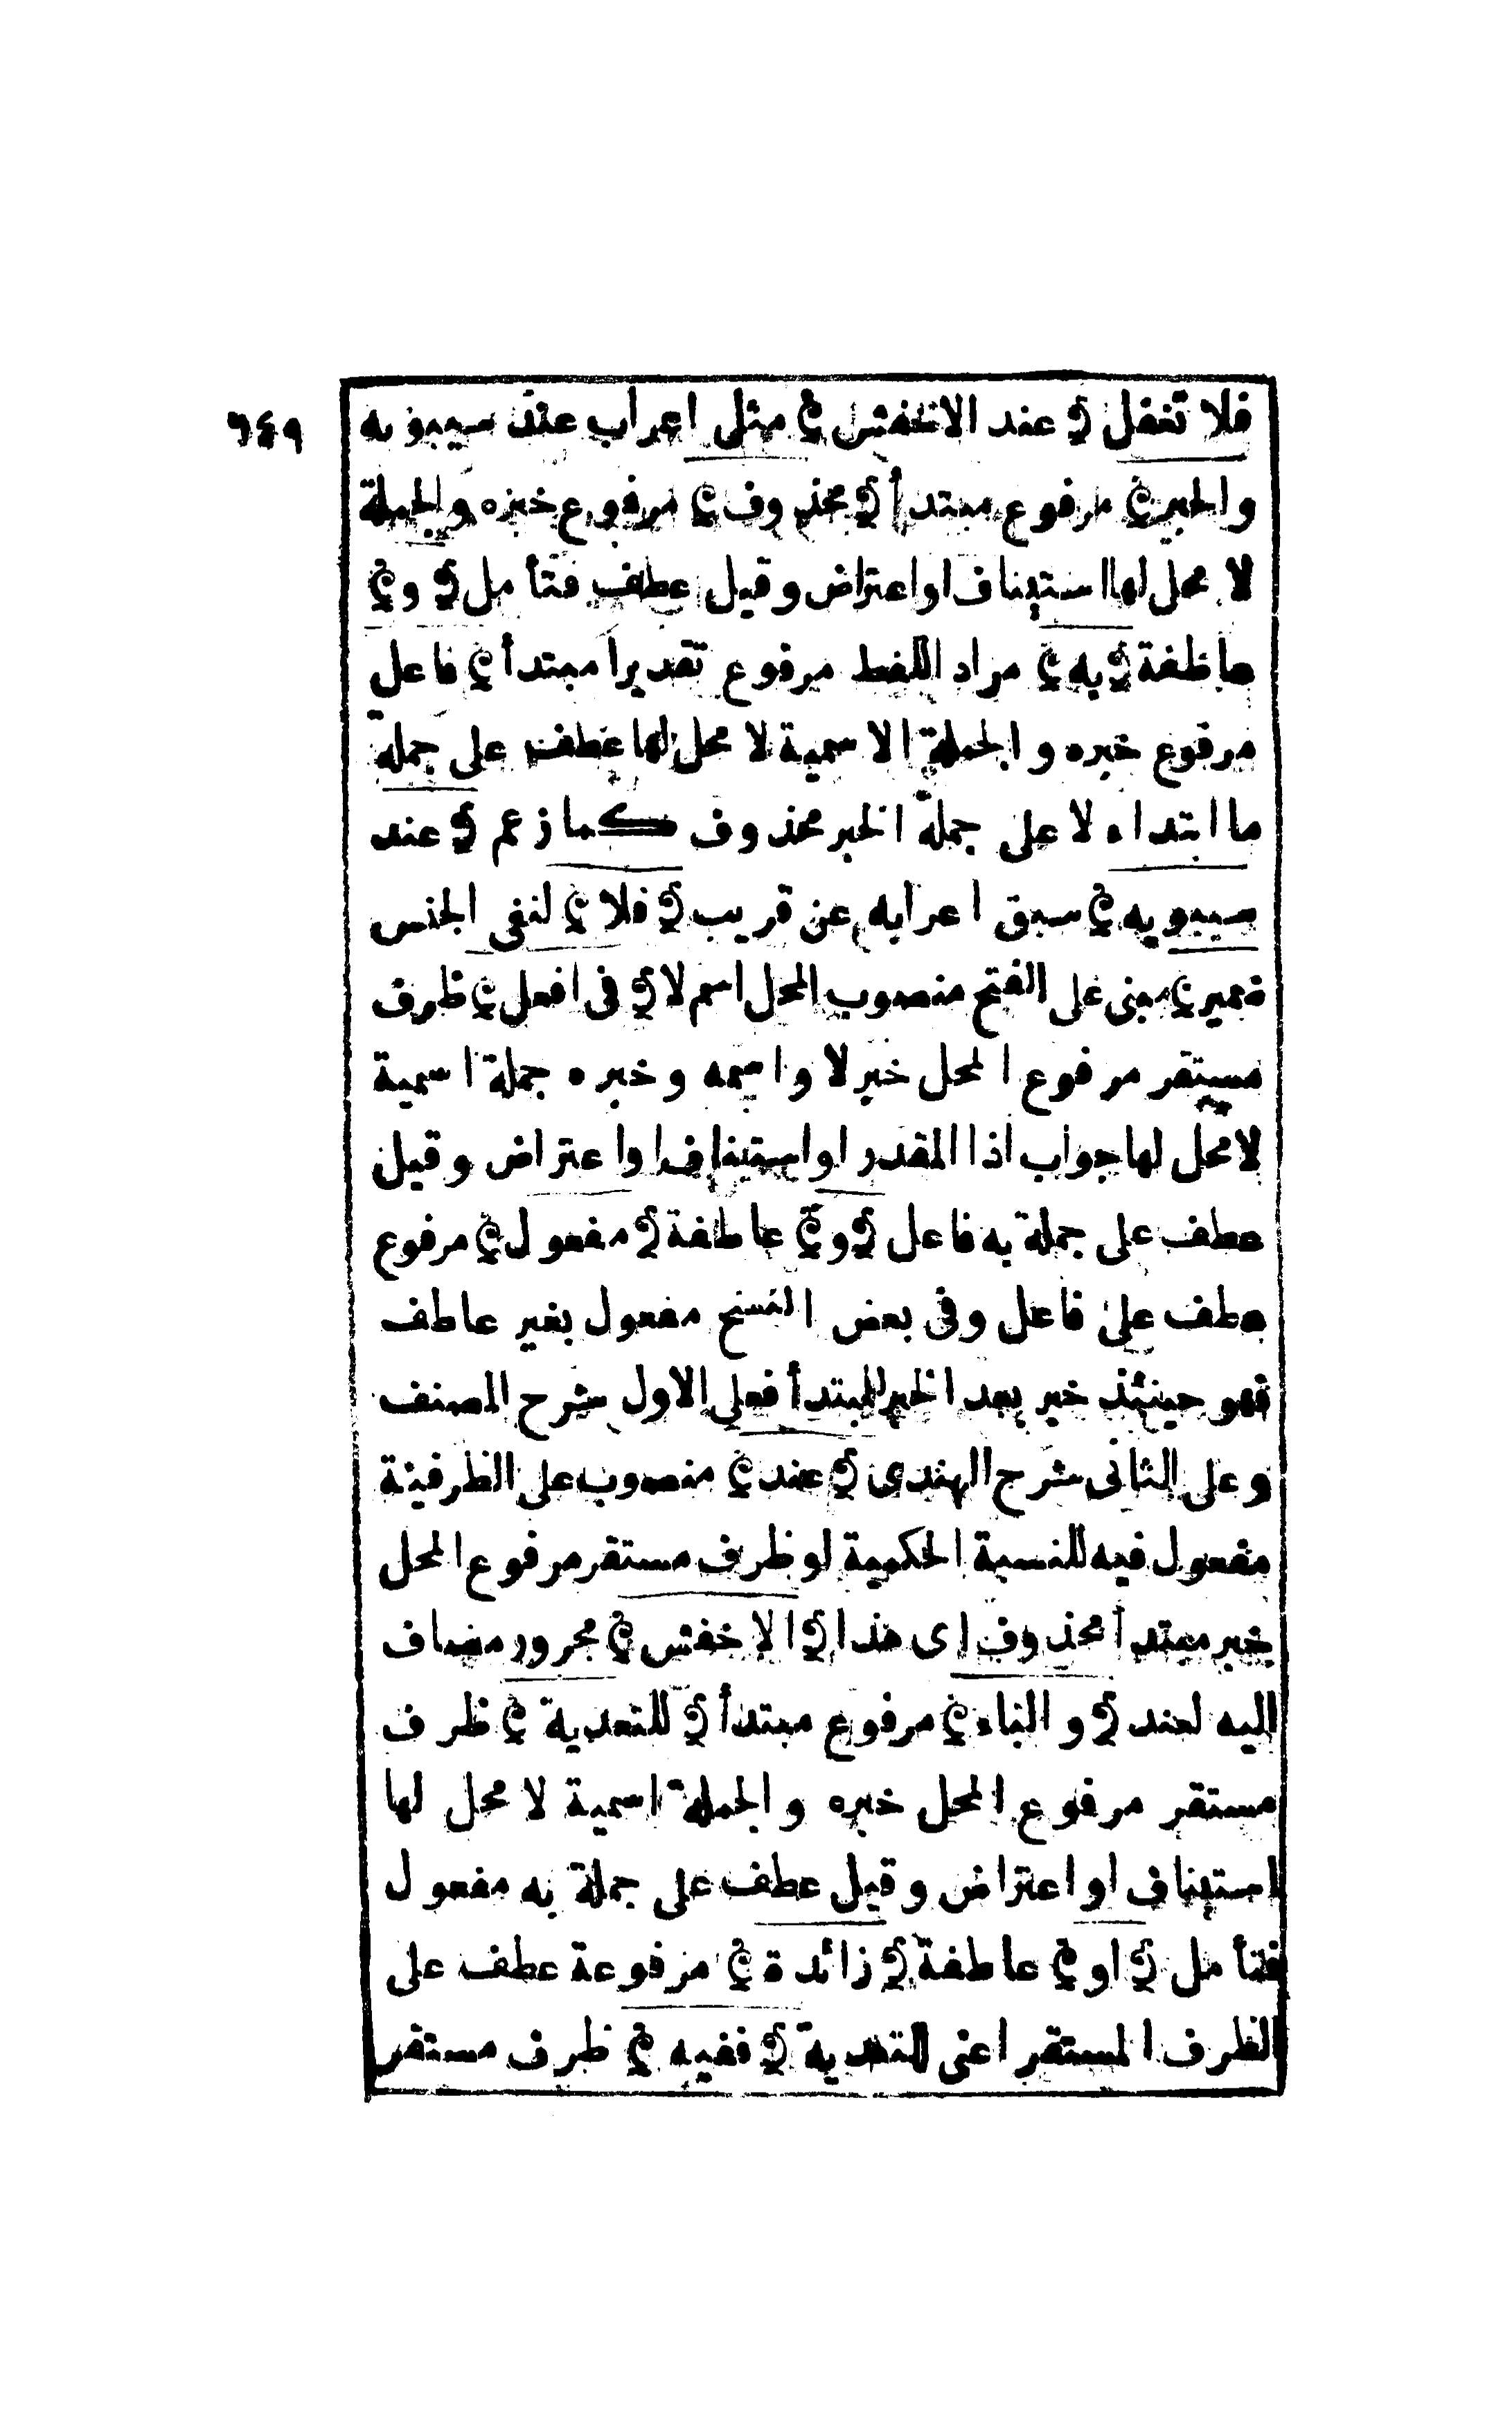 ٦٤٩
فلا تغفل ﴿ عند الاخفش ﴾ مثل اعراب عند سيبويه
والخبر ﴾ مرفوع مبتدأ ﴿ محذوف ﴾ مرفوع خبره والجملة
لا محل لها استيناف او اعتراض وقيل عطف فتأمل ﴿ و ﴾
عاطفة ﴿ به ﴾ مراد اللفظ مرفوع تقديرا مبتدأ ﴾ فاعل
مرفوع خبره والجملة الاسمية لا محل لها عطف على جملة
ما ابتداء لا على جملة الخبر محذوف كما زعم ﴿ عند
سيبويه ﴾ سبق اعرابه عن قريب ﴿ فلا ﴾ لنفى الجنس
ضمير ﴾ مبنى على الفتح منصوب المحل اسم لا ﴿ فى افعل ﴾ ظرف
مستقر مرفوع المحل خبر لا واسمه وخبره جملة اسمية
لا محل لها جواب اذا المقدر او استيناف او اعتراض وقيل
عطف على جملة به فاعل ﴿ و ﴾ عاطفة ﴿ مفعول ﴾ مرفوع
عطف على فاعل وفى بعض النسخ مفعول بغير عاطف
فهو حينئذ خبر بعد الخبر للمبتدأ فعلى الاول شرح المصنف
وعلى الثانى شرح الهندى ﴿ عند ﴾ منصوب على الظرفية
مفعول فيه للنسبة الحكمية او ظرف مستقر مرفوع المحل
خبر مبتدأ محذوف اى هذا ﴿ الاخفش ﴾ مجرور مضاف
اليه لعند ﴿ و الباء ﴾ مرفوع مبتدأ ﴿ للتعدية ﴾ ظرف
مستقر مرفوع المحل خبره والجملة اسمية لا محل لها
استيناف او اعتراض وقيل عطف على جملة به مفعول
فتأمل ﴿ او ﴾ عاطفة ﴿ زائدة ﴾ مرفوعة عطف على
الظرف المستقر اعنى للتعدية ﴿ ففيه ﴾ ظرف مستقر